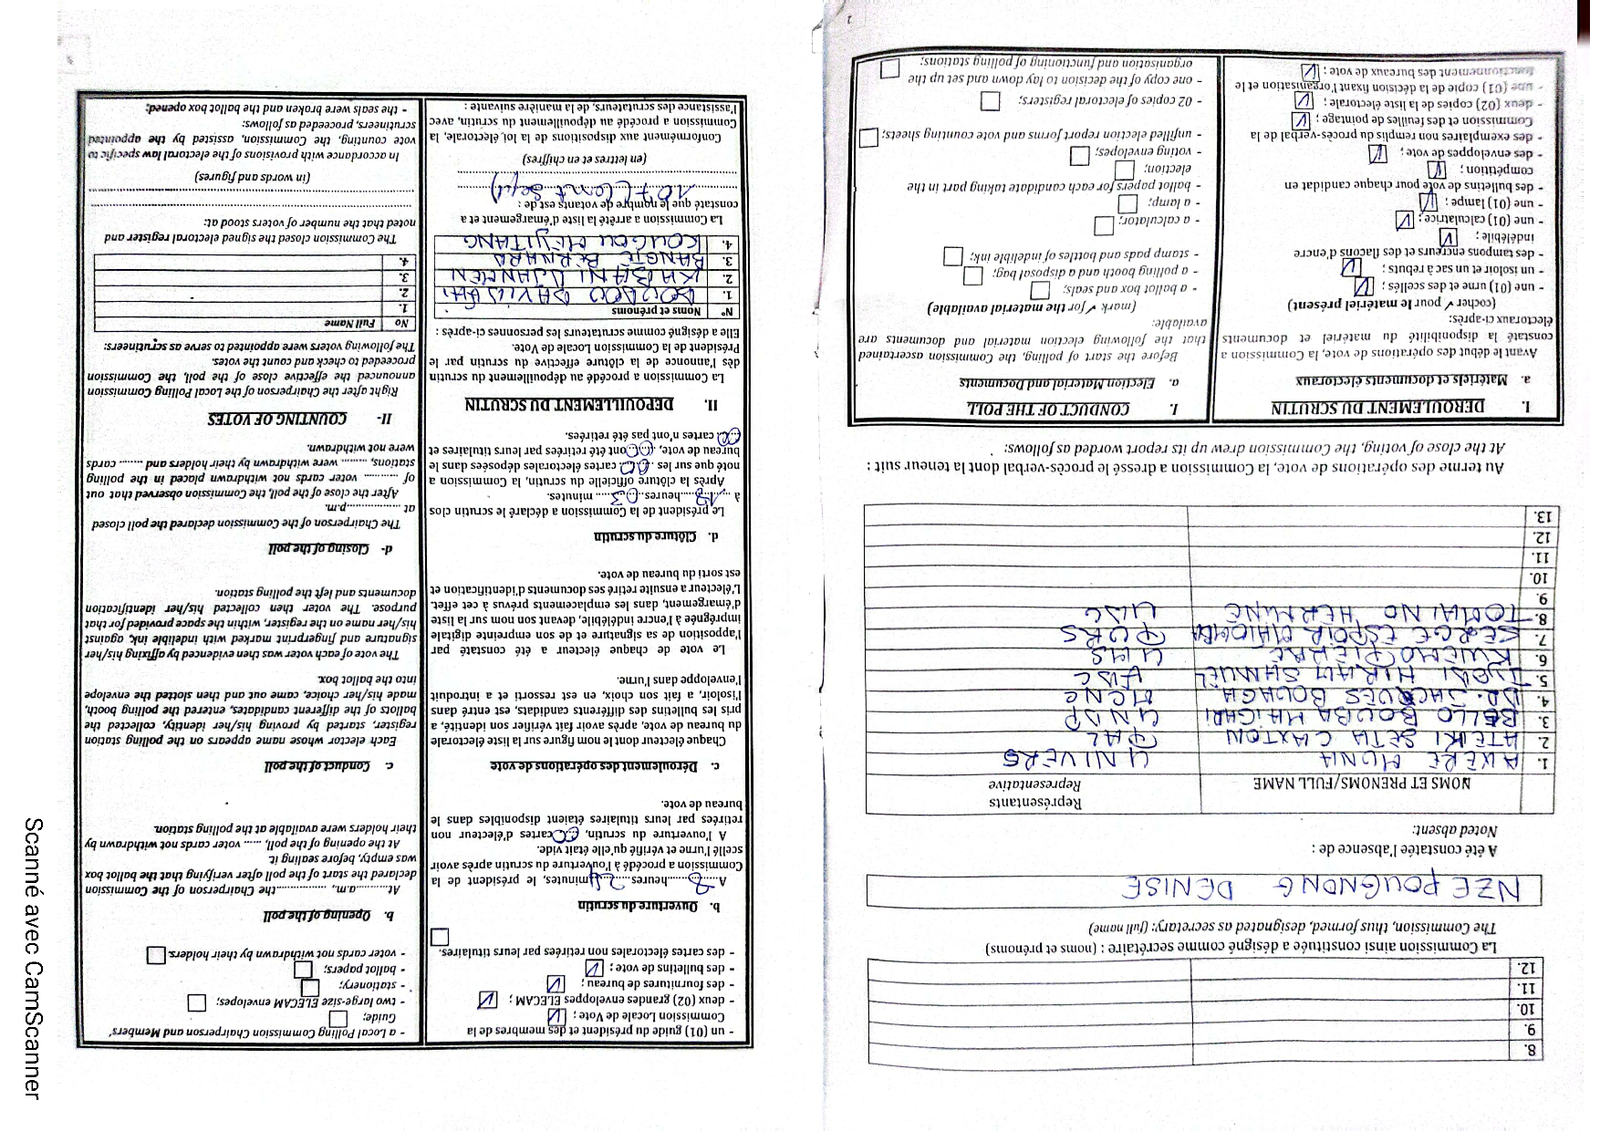 8.
9.
10.
11.
12.
La Commission ainsi constituée a désigné comme secrétaire : (noms et prénoms)
The Commission, thus formed, designated as secretary: (full name)
NZE POUGNONG DENISE
A été constatée l'absence de :
Noted absent:
NOMS ET PRENOMS/FULL NAME
Représentants
Representative
1. AKERE MUNA UNIVERS
2. ATEKI SETA CAXTON PAL
3. BELLO BOUBA MAIGARI UNDP
4. DR. JACQUES BOUGHA MCNC
5. HIRAM SAMUEL
6. KWEMO PIERRE UMS
7. SERGE ESPOIR MATOMBA PURS
8. TOMAINO HERMINE
9.
10.
11.
12.
13.
Au terme des opérations de vote, la Commission a dressé le procès-verbal dont la teneur suit :
At the close of voting, the Commission drew up its report worded as follows:
I. DEROULEMENT DU SCRUTIN
a. Matériels et documents électoraux
Avant le début des opérations de vote, la Commission a
constaté la disponibilité du matériel et documents
électoraux ci-après:
(cocher ✓ pour le matériel présent)
- une (01) urne et des scellés ;
- un isoloir et un sac à rebuts ;
- des tampons encreurs et des flacons d'encre
indélébile ;
- une (01) calculatrice ;
- une (01) lampe ;
- des bulletins de vote pour chaque candidat en
compétition ;
- des enveloppes de vote ;
- des exemplaires non remplis du procès-verbal de la
Commission et des feuilles de pointage ;
- deux (02) copies de la liste électorale ;
- une (01) copie de la décision fixant l'organisation et le
fonctionnement des bureaux de vote ;
I. CONDUCT OF THE POLL
a. Election Material and Documents
Before the start of polling, the Commission ascertained
that the following election material and documents are
available:
(mark ✓ for the material available)
- a ballot box and seals;
- a polling booth and a disposal bag;
- stamp pads and bottles of indelible ink;
- a calculator;
- a lamp;
- ballot papers for each candidate taking part in the
election;
- voting envelopes;
- unfilled election report forms and vote counting sheets;
- 02 copies of electoral registers;
- one copy of the decision to lay down and set up the
organisation and functioning of polling stations;
- un (01) guide du président et des membres de la
Commission Locale de Vote ;
- deux (02) grandes enveloppes ELECAM ;
- des fournitures de bureau ;
- des bulletins de vote ;
- des cartes électorales non retirées par leurs titulaires.
b. Ouverture du scrutin
A 8 heures 24 minutes, le président de la
Commission a procédé à l'ouverture du scrutin après avoir
scellé l'urne et vérifié qu'elle était vide.
A l'ouverture du scrutin, 00 cartes d'électeur non
retirées par leurs titulaires étaient disponibles dans le
bureau de vote.
c. Déroulement des opérations de vote
Chaque électeur dont le nom figure sur la liste électorale
du bureau de vote, après avoir fait vérifier son identité, a
pris les bulletins des différents candidats, est entré dans
l'isoloir, a fait son choix, en est ressorti et a introduit
l'enveloppe dans l'urne.
Le vote de chaque électeur a été constaté par
l'apposition de sa signature et de son empreinte digitale
imprégnée à l'encre indélébile, devant son nom sur la liste
d'émargement, dans les emplacements prévus à cet effet.
L'électeur a ensuite retiré ses documents d'identification et
est sorti du bureau de vote.
d. Clôture du scrutin
Le président de la Commission a déclaré le scrutin clos
à 18 heures 03 minutes.
Après la clôture officielle du scrutin, la Commission a
noté que sur les 00 cartes électorales déposées dans le
bureau de vote, 00 ont été retirées par leurs titulaires et
00 cartes n'ont pas été retirées.
II. DEPOUILLEMENT DU SCRUTIN
La Commission a procédé au dépouillement du scrutin
dès l'annonce de la clôture effective du scrutin par le
Président de la Commission Locale de Vote.
Elle a désigné comme scrutateurs les personnes ci-après :
N° Noms et prénoms
1.
2. KABANI DJANKEN
3. BANGTE BERNARD
4. KOUGOU MEYITANG
La Commission a arrêté la liste d'émargement et a
constaté que le nombre de votants est de :
107 (Cent Sept)
(en lettres et en chiffres)
Conformément aux dispositions de la loi électorale, la
Commission a procédé au dépouillement du scrutin, avec
l'assistance des scrutateurs, de la manière suivante :
- a Local Polling Commission Chairperson and Members'
Guide;
- two large-size ELECAM envelopes;
- stationery;
- ballot papers;
- voter cards not withdrawn by their holders.
b. Opening of the poll
At ........a.m., ..............the Chairperson of the Commission
declared the start of the poll after verifying that the ballot box
was empty, before sealing it.
At the opening of the poll, ...... voter cards not withdrawn by
their holders were available at the polling station.
c. Conduct of the poll
Each elector whose name appears on the polling station
register, started by proving his/her identity, collected the
ballots of the different candidates, entered the polling booth,
made his/her choice, came out and then slotted the envelope
into the ballot box.
The vote of each voter was then evidenced by affixing his/her
signature and fingerprint marked with indelible ink, against
his/her name on the register, within the space provided for that
purpose. The voter then collected his/her identification
documents and left the polling station.
d- Closing of the poll
The Chairperson of the Commission declared the poll closed
at ..................p.m.
After the close of the poll, the Commission observed that out
of ......... voter cards not withdrawn placed in the polling
stations, ........ were withdrawn by their holders and ....... cards
were not withdrawn.
II- COUNTING OF VOTES
Right after the Chairperson of the Local Polling Commission
announced the effective close of the poll, the Commission
proceeded to check and count the votes.
The following voters were appointed to serve as scrutineers:
No Full Name
1.
2.
3.
4.
The Commission closed the signed electoral register and
noted that the number of voters stood at:
(in words and figures)
In accordance with provisions of the electoral law specific to
vote counting, the Commission, assisted by the appointed
scrutineers, proceeded as follows:
- the seals were broken and the ballot box opened;
Scanné avec CamScanner